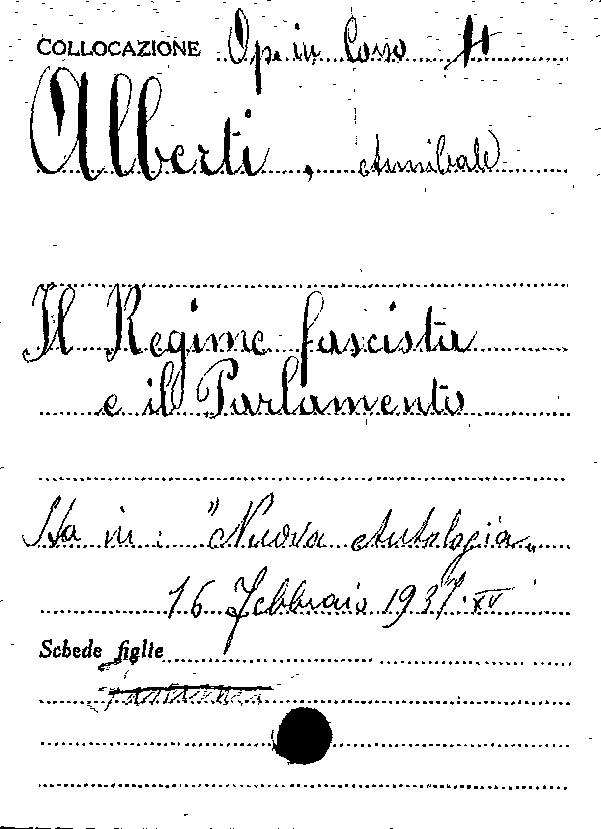 COLLOCAZIONE Op. in Corso H
Alberti, Annibale
Il Regime fascista
e il Parlamento
Sta in: "Nuova Antologia"
16 Febbraio 1937. XV
Schede figlie